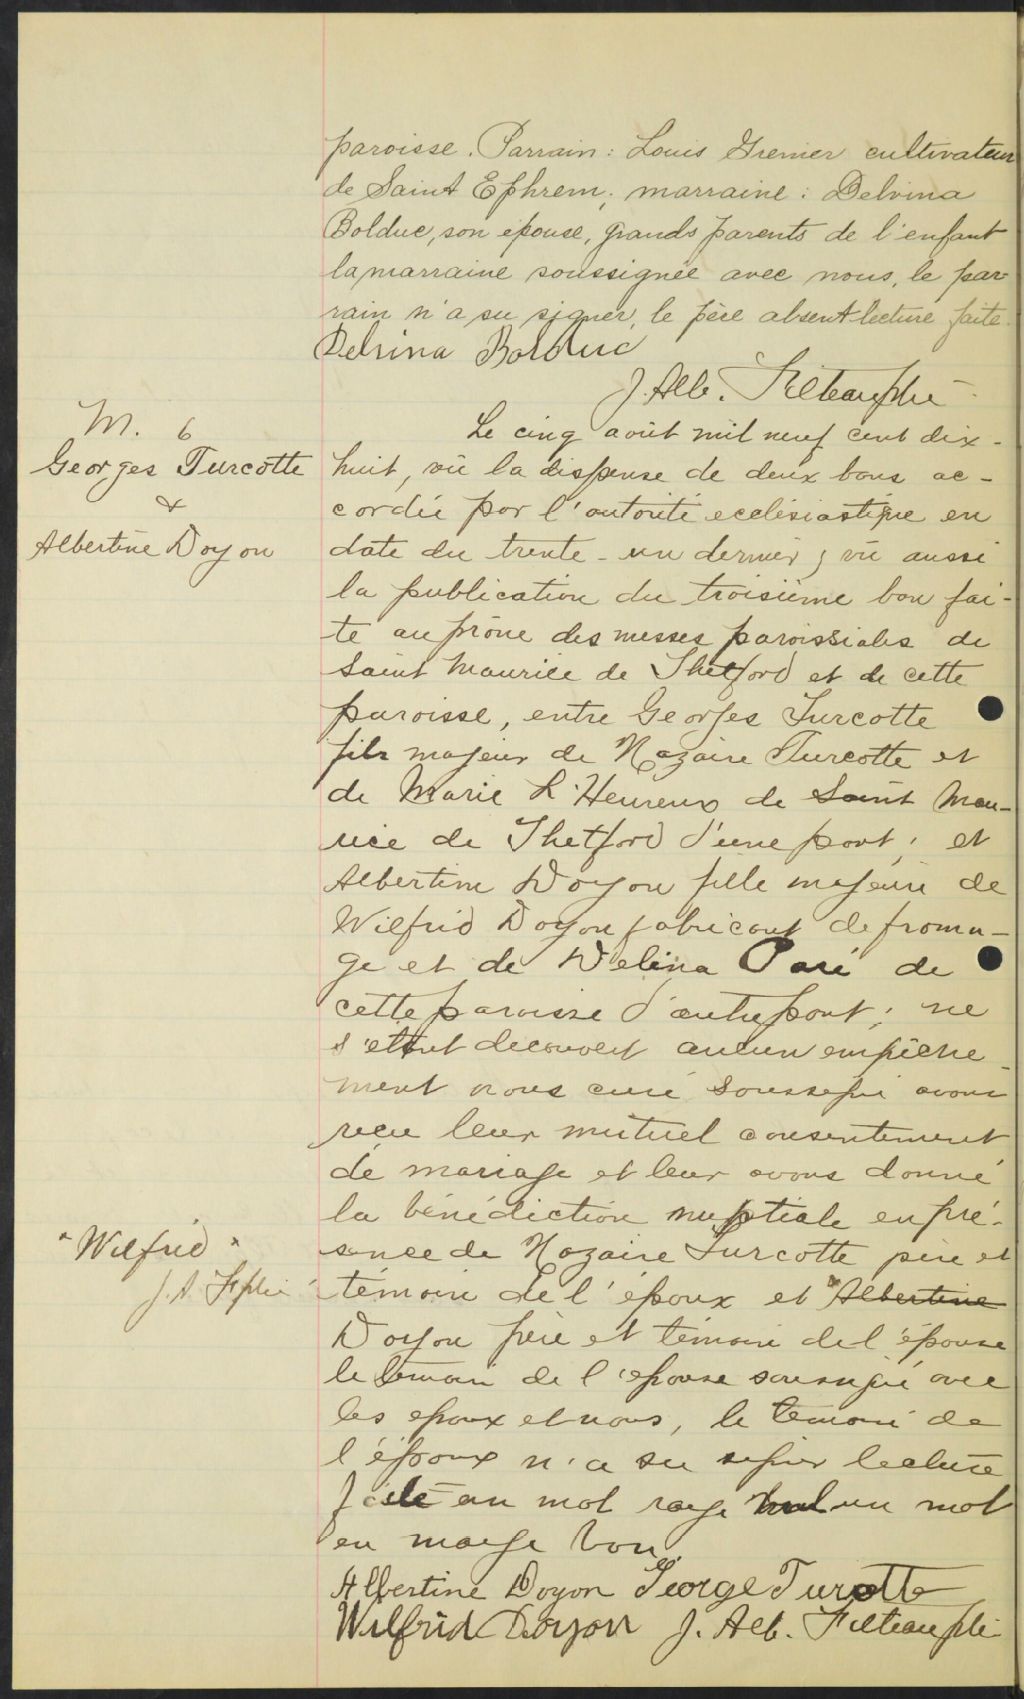 paroisse. Parrain : Louis Grenier cultivateur
de Saint Ephrem; marraine : Delvina
Bolduc, son épouse, grands parents de l'enfant
la marraine soussignée avec nous, le par-
rain n'a su signer, le père absent lecture faite.
Delvina Bolduc
J. Alb. Filteau ptre
M. 6
Georges Turcotte
&
Albertine Doyon
Le cinq août mil neuf cent dix-
huit, vu la dispense de deux bans ac-
cordée par l'autorité ecclésiastique en
date du trente-un dernier; vu aussi
la publication du troisième ban fai-
te au prône des messes paroissiales de
Saint Maurice de Thetford et de cette
paroisse, entre Georges Turcotte
fils majeur de Nazaire Turcotte et
de Marie L'Heureux de Saint Mau-
rice de Thetford d'une part; et
Albertine Doyon fille majeure de
Wilfrid Doyon fabricant de froma-
ge et de Delina Paré de
cette paroisse d'autre part; ne
s'étant découvert aucun empêche-
ment nous curé soussigné avons
reçu leur mutuel consentement
de mariage et leur avons donné
la bénédiction nuptiale en pré-
sence de Nazaire Turcotte père et
témoin de l'époux et "Albertine
"Wilfrid"
J. A. F. ptre
Doyon père et témoin de l'épouse
le témoin de l'épouse soussigné avec
les epoux et nous, le témoin de
l'époux n'a su signer lecture
faite un mot rayé nul un mot
en marge bon
Albertine Doyon George Turcotte
Wilfrid Doyon J. Alb. Filteau ptre